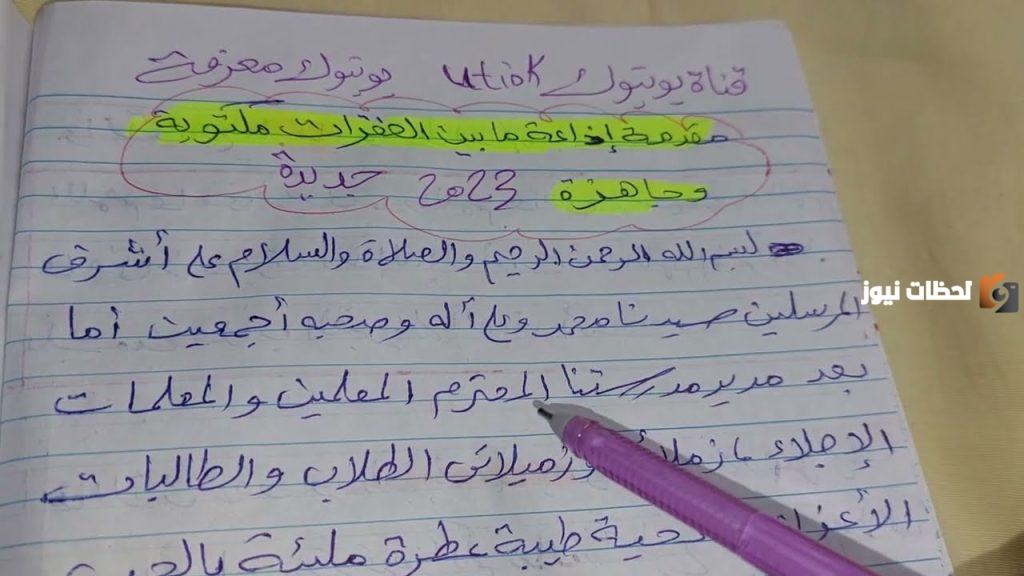 قناة يوتيوك utiok يوتيوك معرفة
مقدمة إذاعة ما بين الفقرات مكتوبة
وجاهزة 2023 جديدة
بسم الله الرحمن الرحيم والصلاة والسلام على أشرف
المرسلين سيدنا محمد وعلى آله وصحبه أجمعين أما
بعد مدير مدرستنا المحترم المعلمين والمعلمات
الإجلاء وزميلاتي الطلاب والطالبات
طيبة عطرة مليئة
لحظات نيوز